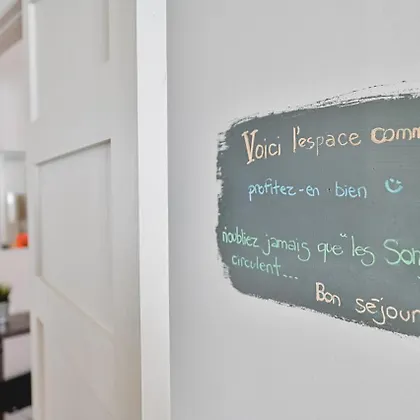 Voici l'espace comm
profitez-en bien
n'oubliez jamais que "les Son
circulent...
Bon séjour